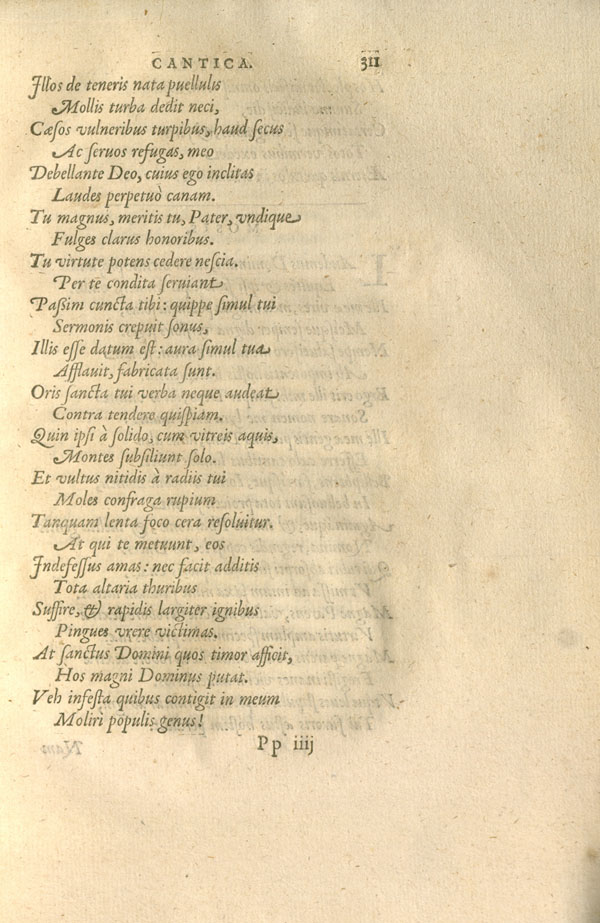 CANTICA. 311
Illos de teneris nata puellulis
Mollis turba dedit neci,
Cæsos vulneribus turpibus, haud secus
Ac seruos refugas, meo
Debellante Deo, cuius ego inclitas
Laudes perpetuò canam.
Tu magnus, meritis tu, Pater, vndique
Fulges clarus honoribus.
Tu virtute potens cedere nescia.
Per te condita seruiant
Paßim cuncta tibi: quippe simul tui
Sermonis crepuit sonus,
Illis esse datum est: aura simul tua
Afflauit, fabricata sunt.
Oris sancta tui verba neque audeat
Contra tendere quispiam.
Quin ipsi à solido, cum vitreis aquis,
Montes subsiliunt solo.
Et vultus nitidis à radiis tui
Moles confraga rupium
Tanquam lenta foco cera resoluitur.
At qui te metuunt, eos
Indefessus amas: nec facit additis
Tota altaria thuribus
Suffire, & rapidis largiter ignibus
Pingues vrere victimas.
At sanctus Domini quos timor afficit,
Hos magni Dominus putat.
Veh infesta quibus contigit in meum
Moliri populis genus!
Pp iiij